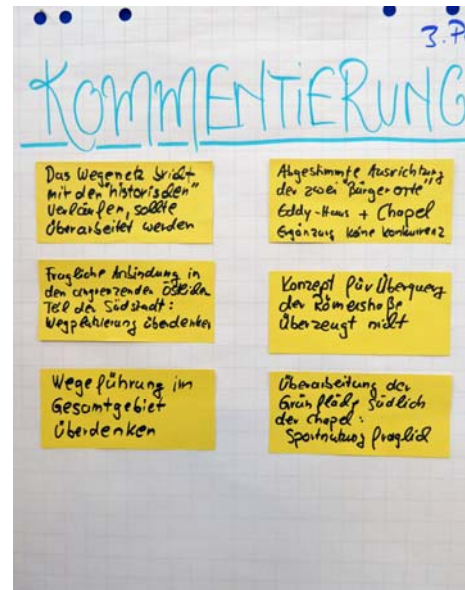 3. P
KOMMENTIERUNG
Das Wegenetz bricht
mit den "historischen"
Verläufen, sollte
überarbeitet werden
Fragliche Anbindung in
den angrenzenden östlichen
Teil der Südstadt:
Wegplatzierung überdenken
Wegeführung im
Gesamtgebiet
Überdenken
Abgestimmte Ausrichtung
der zwei "Bürgerorte"
Eddy-Haus + Chapel
Ergänzung keine Konkurrenz
Konzept für Überquerung
der Römerstraße
überzeugt nicht
Überarbeitung der
Grünfläche südlich
der Chapel:
Sportnutzung fraglich